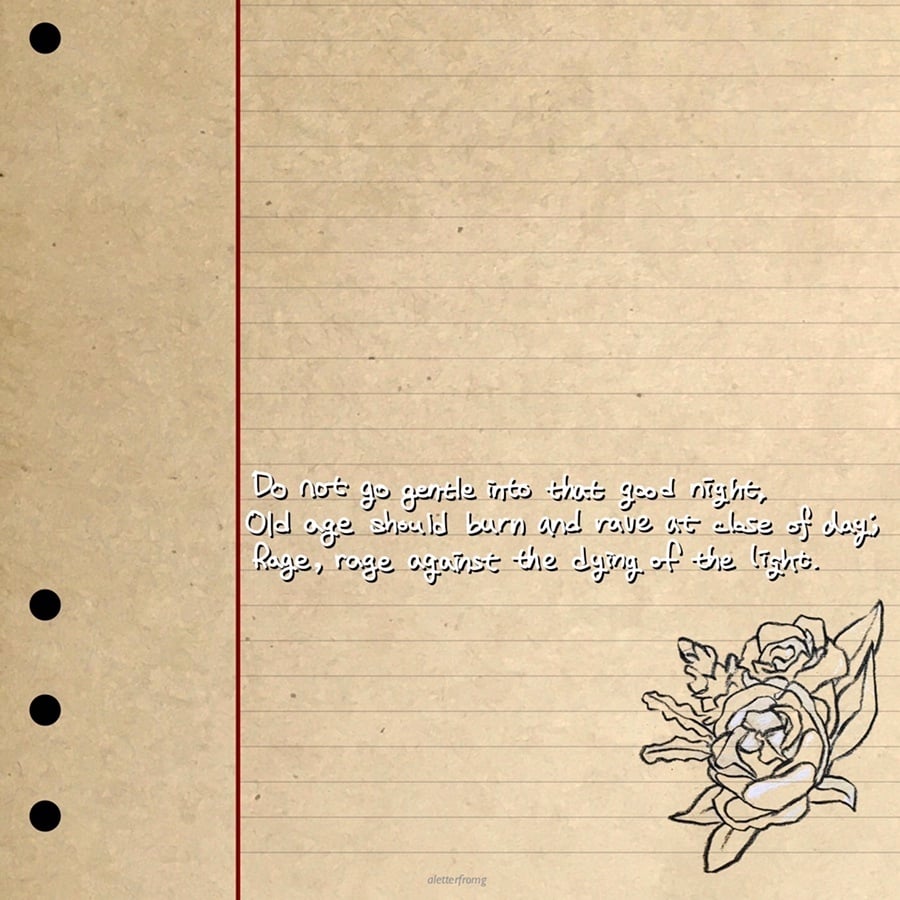 Do not go gentle into that good night,
Old age should burn and rave at close of day;
Rage, rage against the dying of the light.
aletterfromg